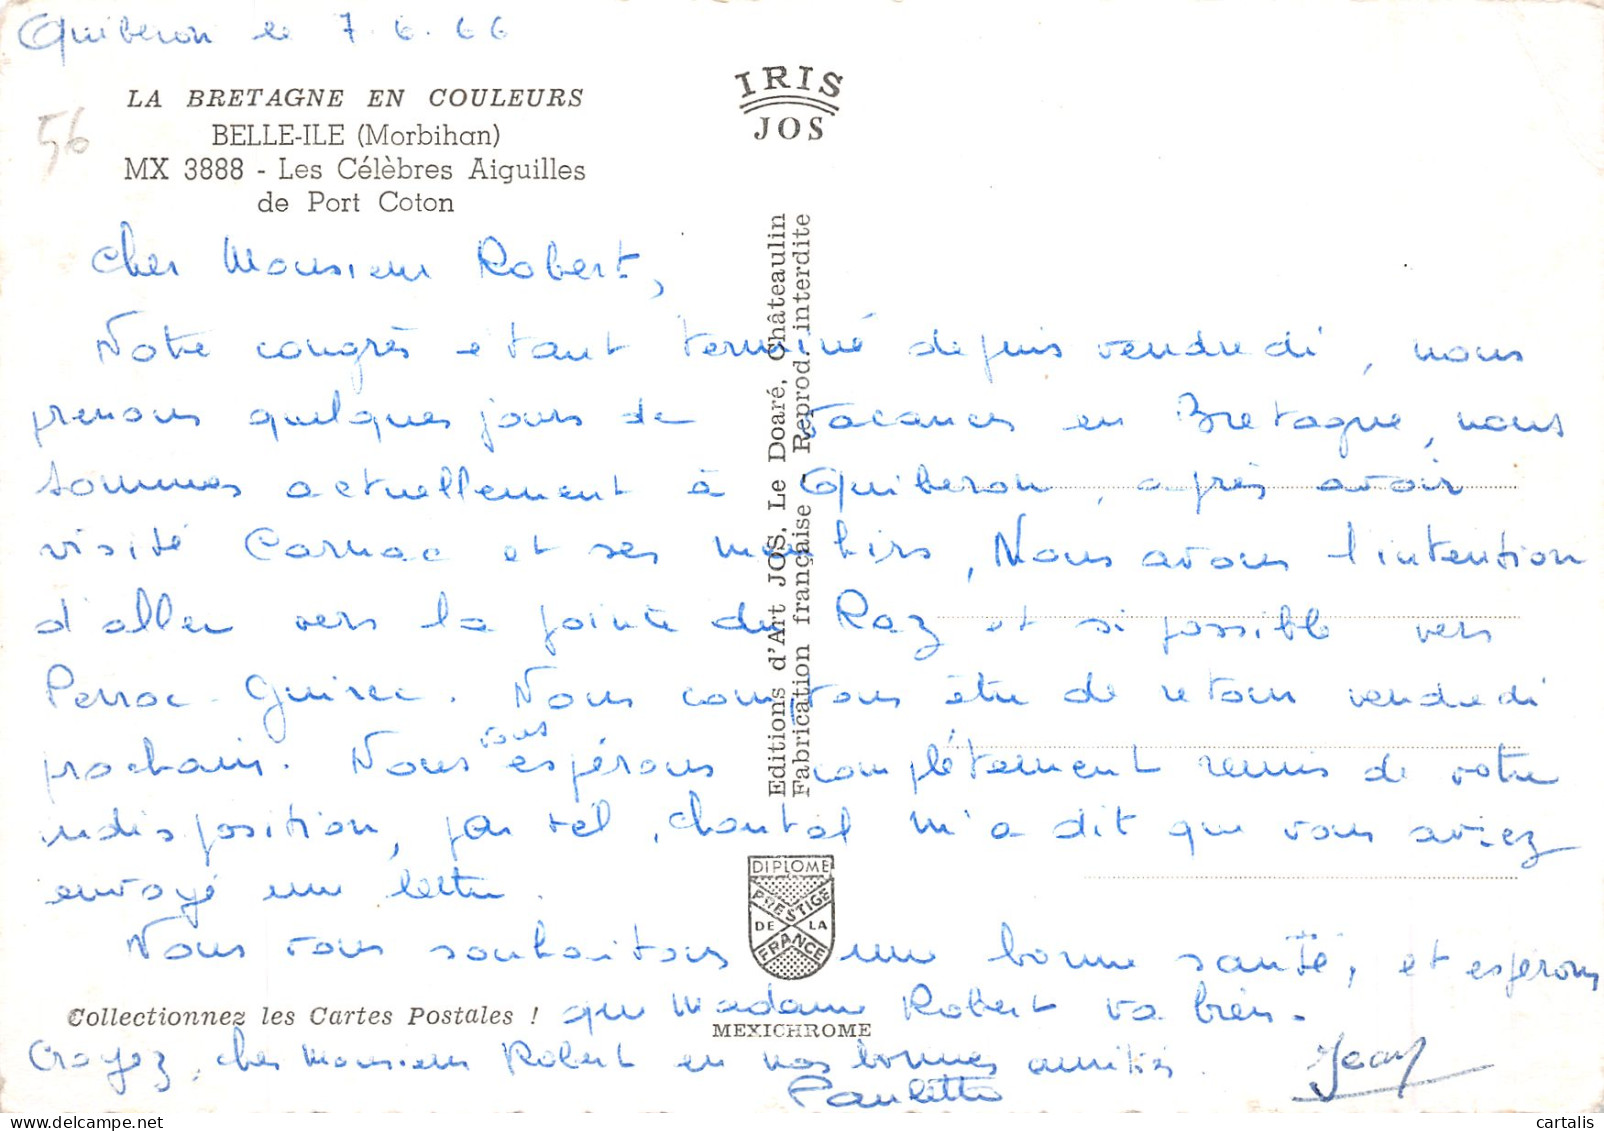 Quiberon le 7.6.66
LA BRETAGNE EN COULEURS
BELLE-ILE (Morbihan)
MX 3888 - Les Célèbres Aiguilles
de Port Coton
56
IRIS
JOS
Editions d'Art JOS, Le Doaré, Châteaulin
Fabrication française - Reprod. interdite
Cher Monsieur Robert,
Notre congrès etant terminé depuis vendredi, nous
prenons quelques jours de vacances en Bretagne, nous
sommes actuellement à Quiberon, après avoir
visité Carnac et ses menhirs, Nous avons l'intention
d'aller vers la pointe du Raz et si possible vers
Perroc-Guirec. Nous comptons être de retour vendredi
prochain. Nous vous espérons complétement remis de votre
indisposition, par tél, Chantal m'a dit que vous aviez
envoyé une lettre.
Nous vous souhaitons une bonne santé, et esperons
que Madame Robert va bien.
Croyez, cher Monsieur Robert en nos bonnes amitiés
Jean
Paulette
DIPLOME
PRESTIGE
DE LA
FRANCE
Collectionnez les Cartes Postales !
MEXICHROME
cartalis
delcampe.net